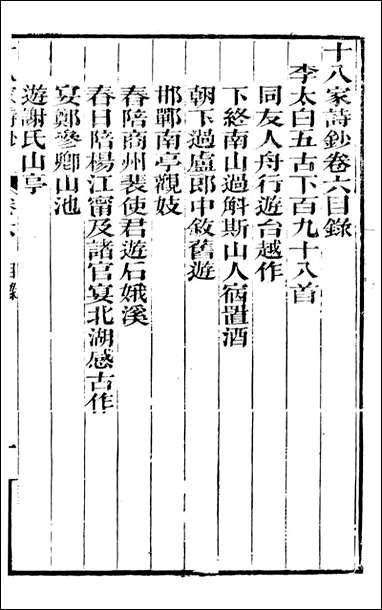 十八家詩鈔卷六目錄
李太白五古下百九十八首
同友人舟行遊台越作
下終南山過斛斯山人宿置酒
朝下過盧郎中敘舊遊
邯鄲南亭觀妓
春陪商州裴使君遊石娥溪
春日陪楊江甯及諸官宴北湖感古作
宴鄭參卿山池
遊謝氏山亭